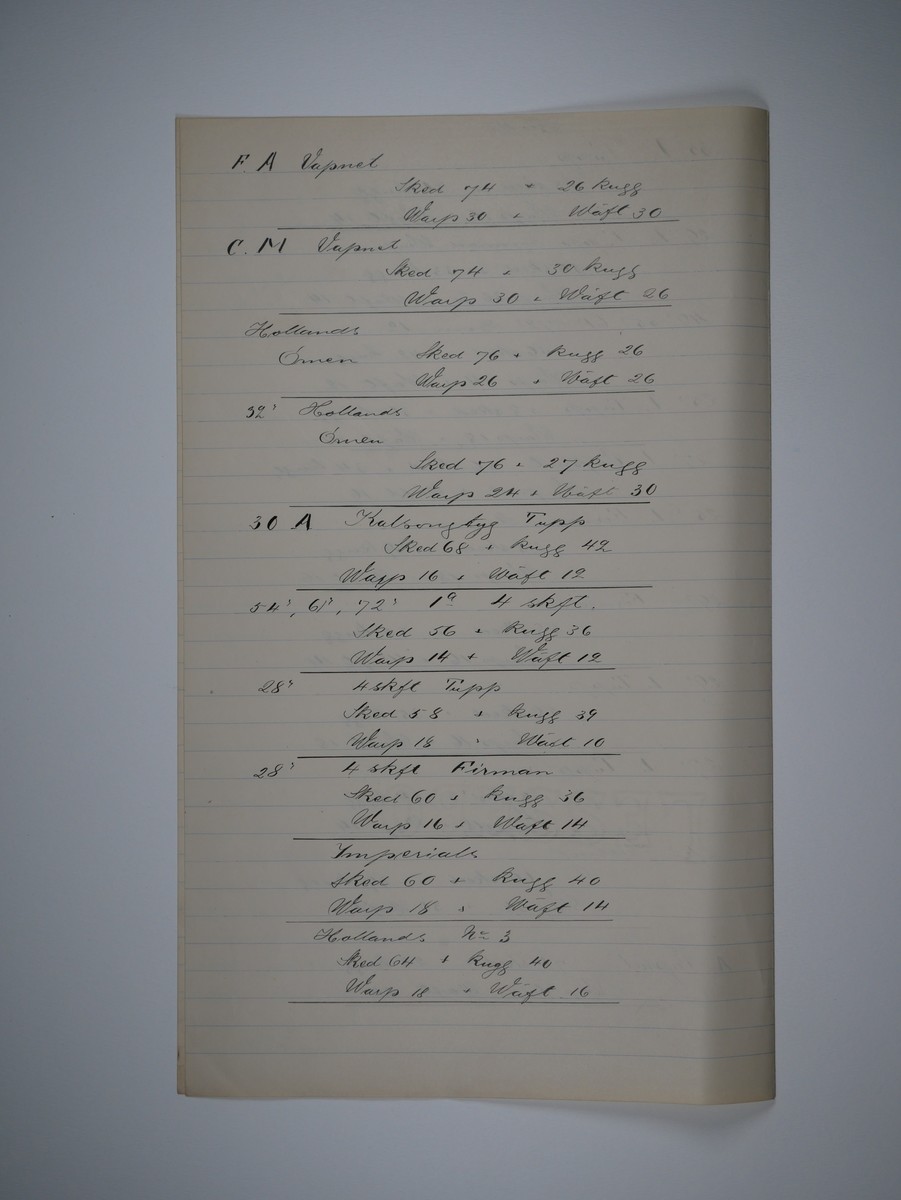 F. A Vapnet
Sked 74 + 26 kugg
Warp 30 + Wäft 30
C. M Vapnet
Sked 74 + 30 kugg
Warp 30 + Wäft 26
Hollands
Örnen Sked 76 + kugg 26
Warp 26 + Wäft 26
32" Hollands
Örnen
Sked 76 + 27 kugg
Warp 24 + Wäft 30
30 A Kalsongtyg Tupp
Sked 68 + kugg 42
Warp 16 + Wäft 12
54", 61", 72" 1a 4 skft.
Sked 56 + kugg 36
Warp 14 + Wäft 12
28" 4 skft Tupp
Sked 58 + kugg 39
Warp 18 + Wäft 10
28" 4 skft Firman
Sked 60 + kugg 36
Warp 16 + Wäft 14
Imperials
Sked 60 + kugg 40
Warp 18 + Wäft 14
Hollands No 3
Sked 64 + kugg 40
Warp 18 + Wäft 16